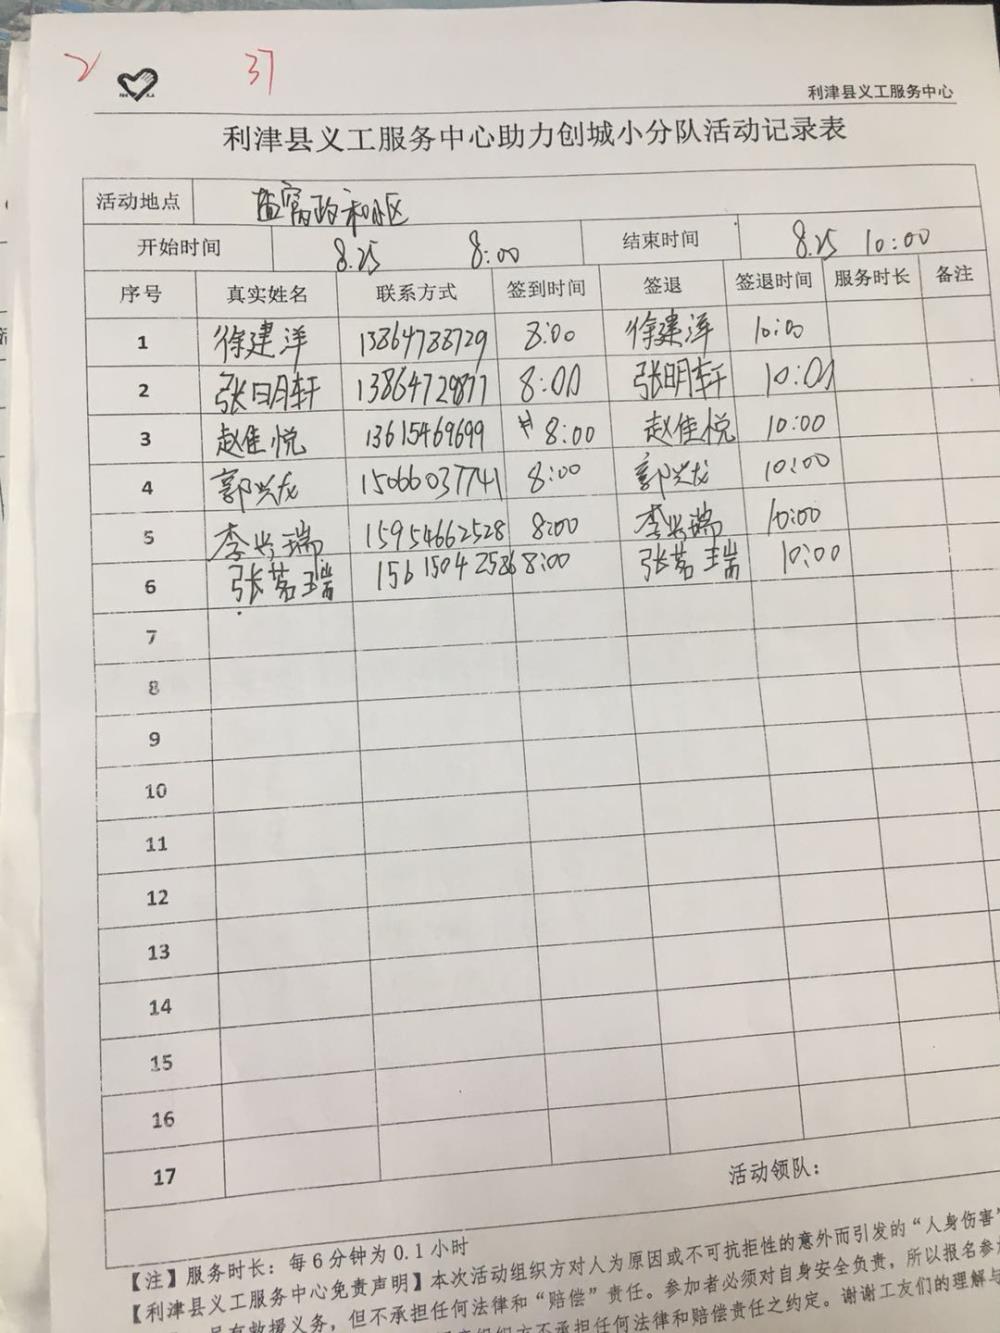 2 37
利津县义工服务中心
利津县义工服务中心助力创城小分队活动记录表
活动地点 盐窝政和小区
开始时间 8.25 8:00 结束时间 8.25 10:00
序号 真实姓名 联系方式 签到时间 签退 签退时间 服务时长 备注
1 徐建洋 13864788729 8:00 徐建洋 10:00
2 张明轩 13864729877 8:00 张明轩 10:00
3 赵佳悦 13615469699 8:00 赵佳悦 10:00
4 郭兴龙 15066037741 8:00 郭兴龙 10:00
5 李兴瑞 15954662528 8:00 李兴瑞 10:00
6 张茗瑞 15615042586 8:00 张茗瑞 10:00
7
8
9
10
11
12
13
14
15
16
17
活动领队：
【注】服务时长：每6分钟为0.1小时
【利津县义工服务中心免责声明】本次活动组织方对人为原因或不可抗拒性的意外而引发的“人身伤害”
具有救援义务，但不承担任何法律和“赔偿”责任。参加者必须对自身安全负责，所以报名参加
组织方不承担任何法律和赔偿责任之约定。谢谢工友们的理解与